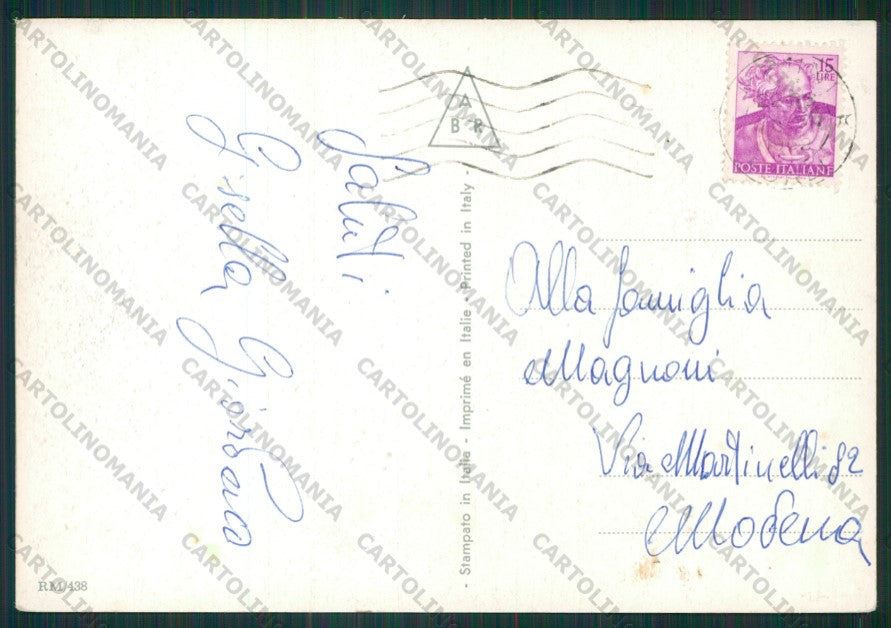 Saluti
Gisella Giordano
A
B R
- Stampato in Italia - Imprimé en Italie - Printed in Italy -
15
LIRE
POSTE ITALIANE
Alla Famiglia
Magnoni
Via Martinelli 82
Modena
RM/438
CARTOLINOMANIA